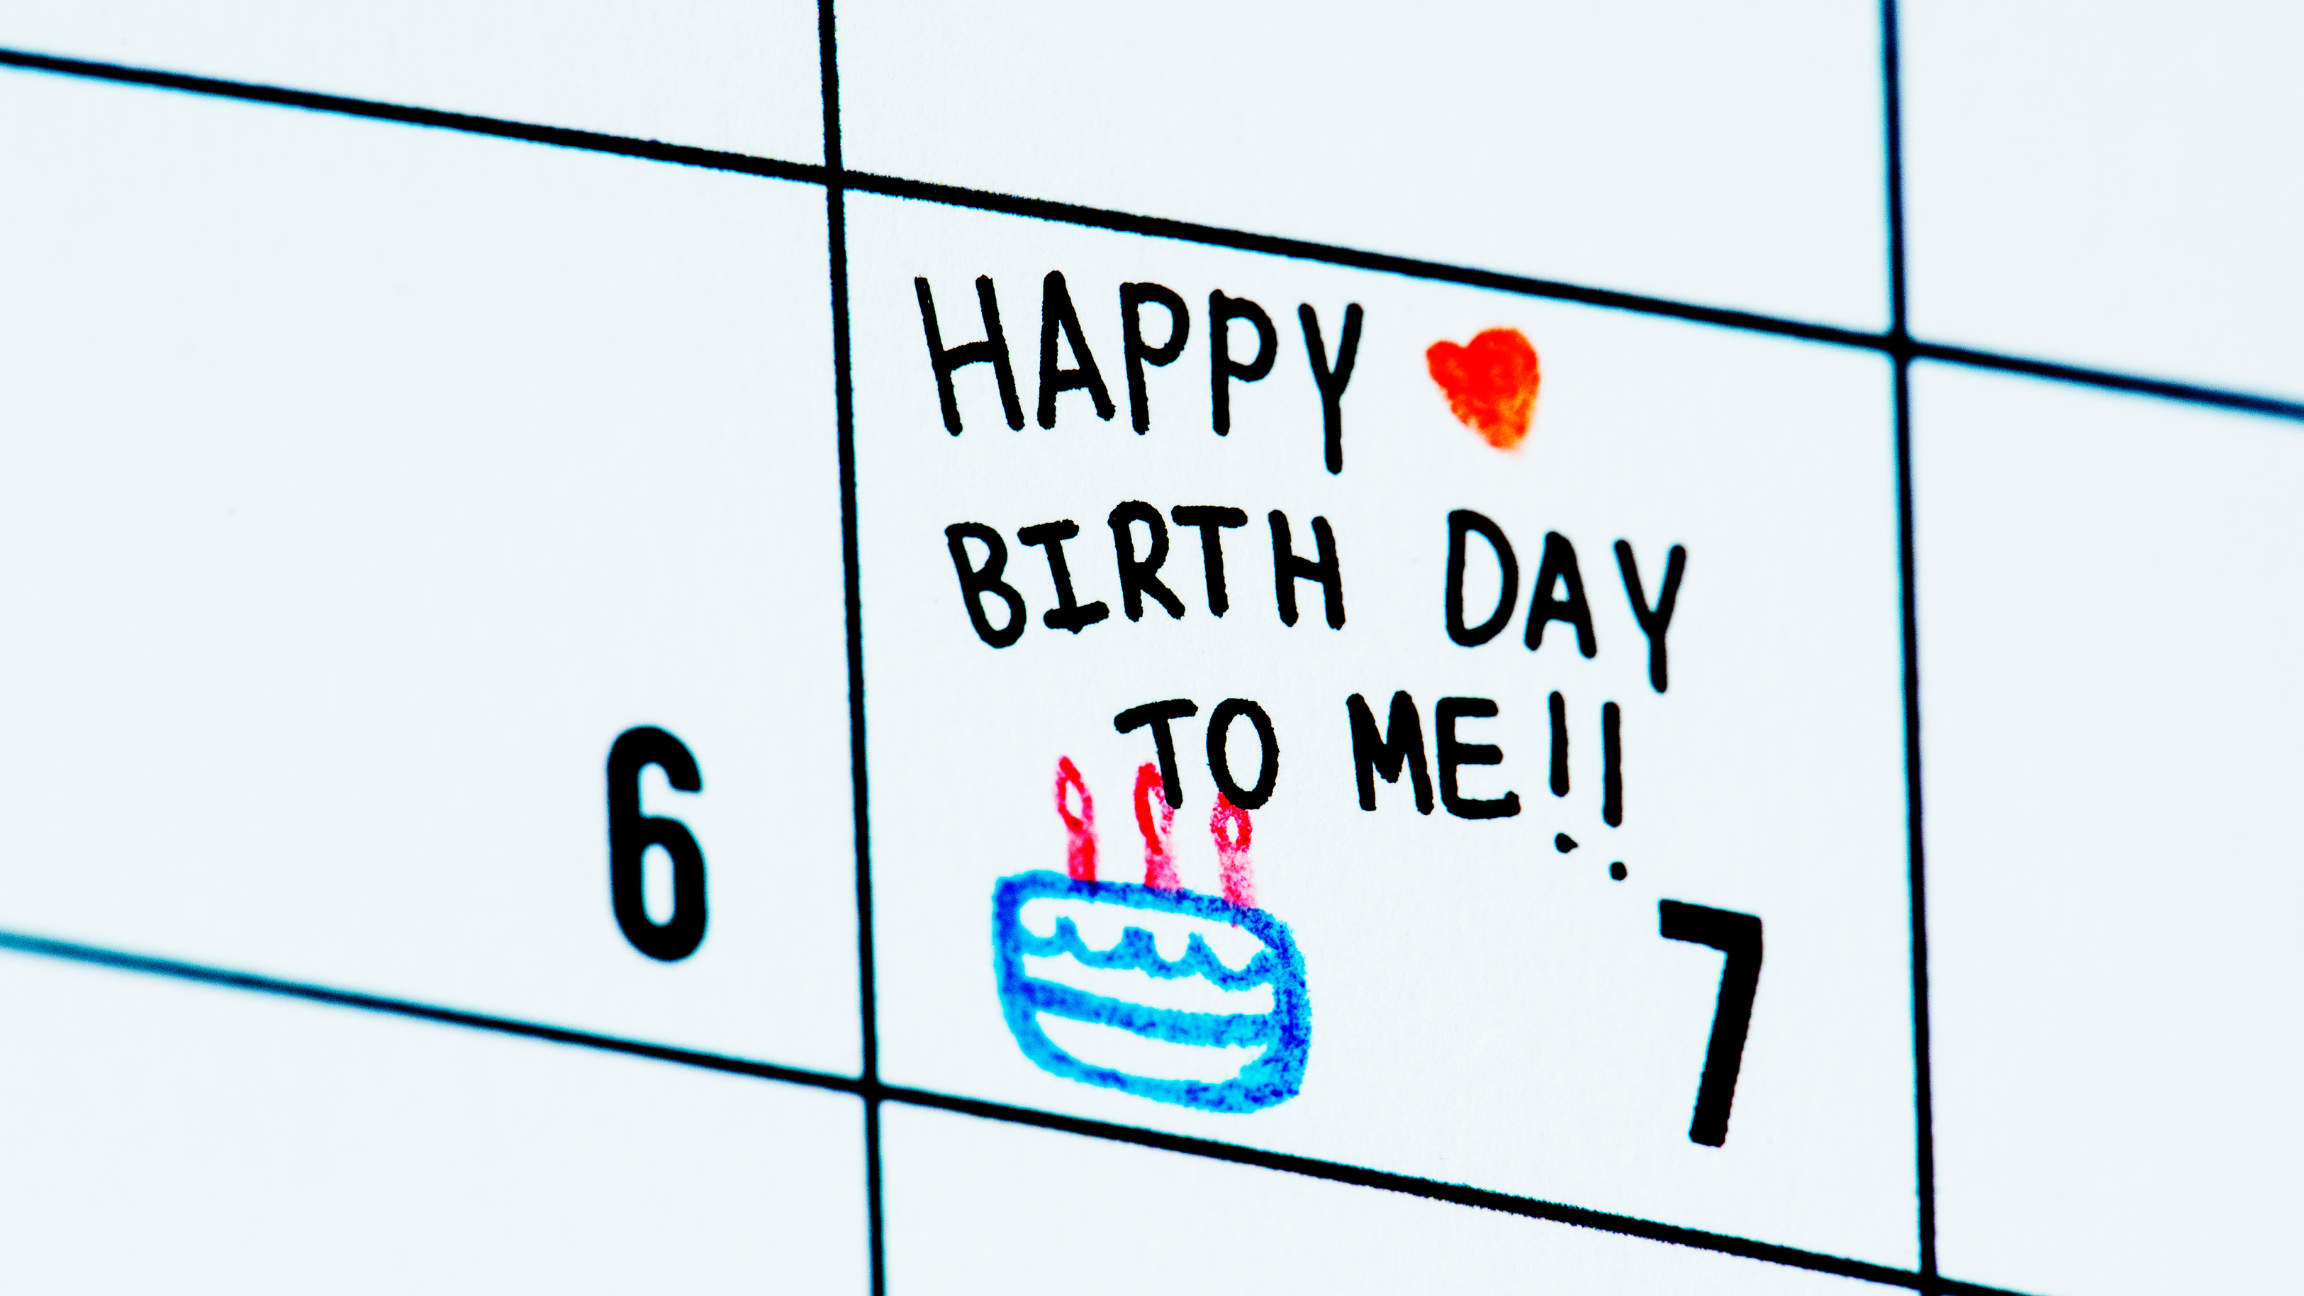 HAPPY
BIRTH DAY
TO ME!!
6
7